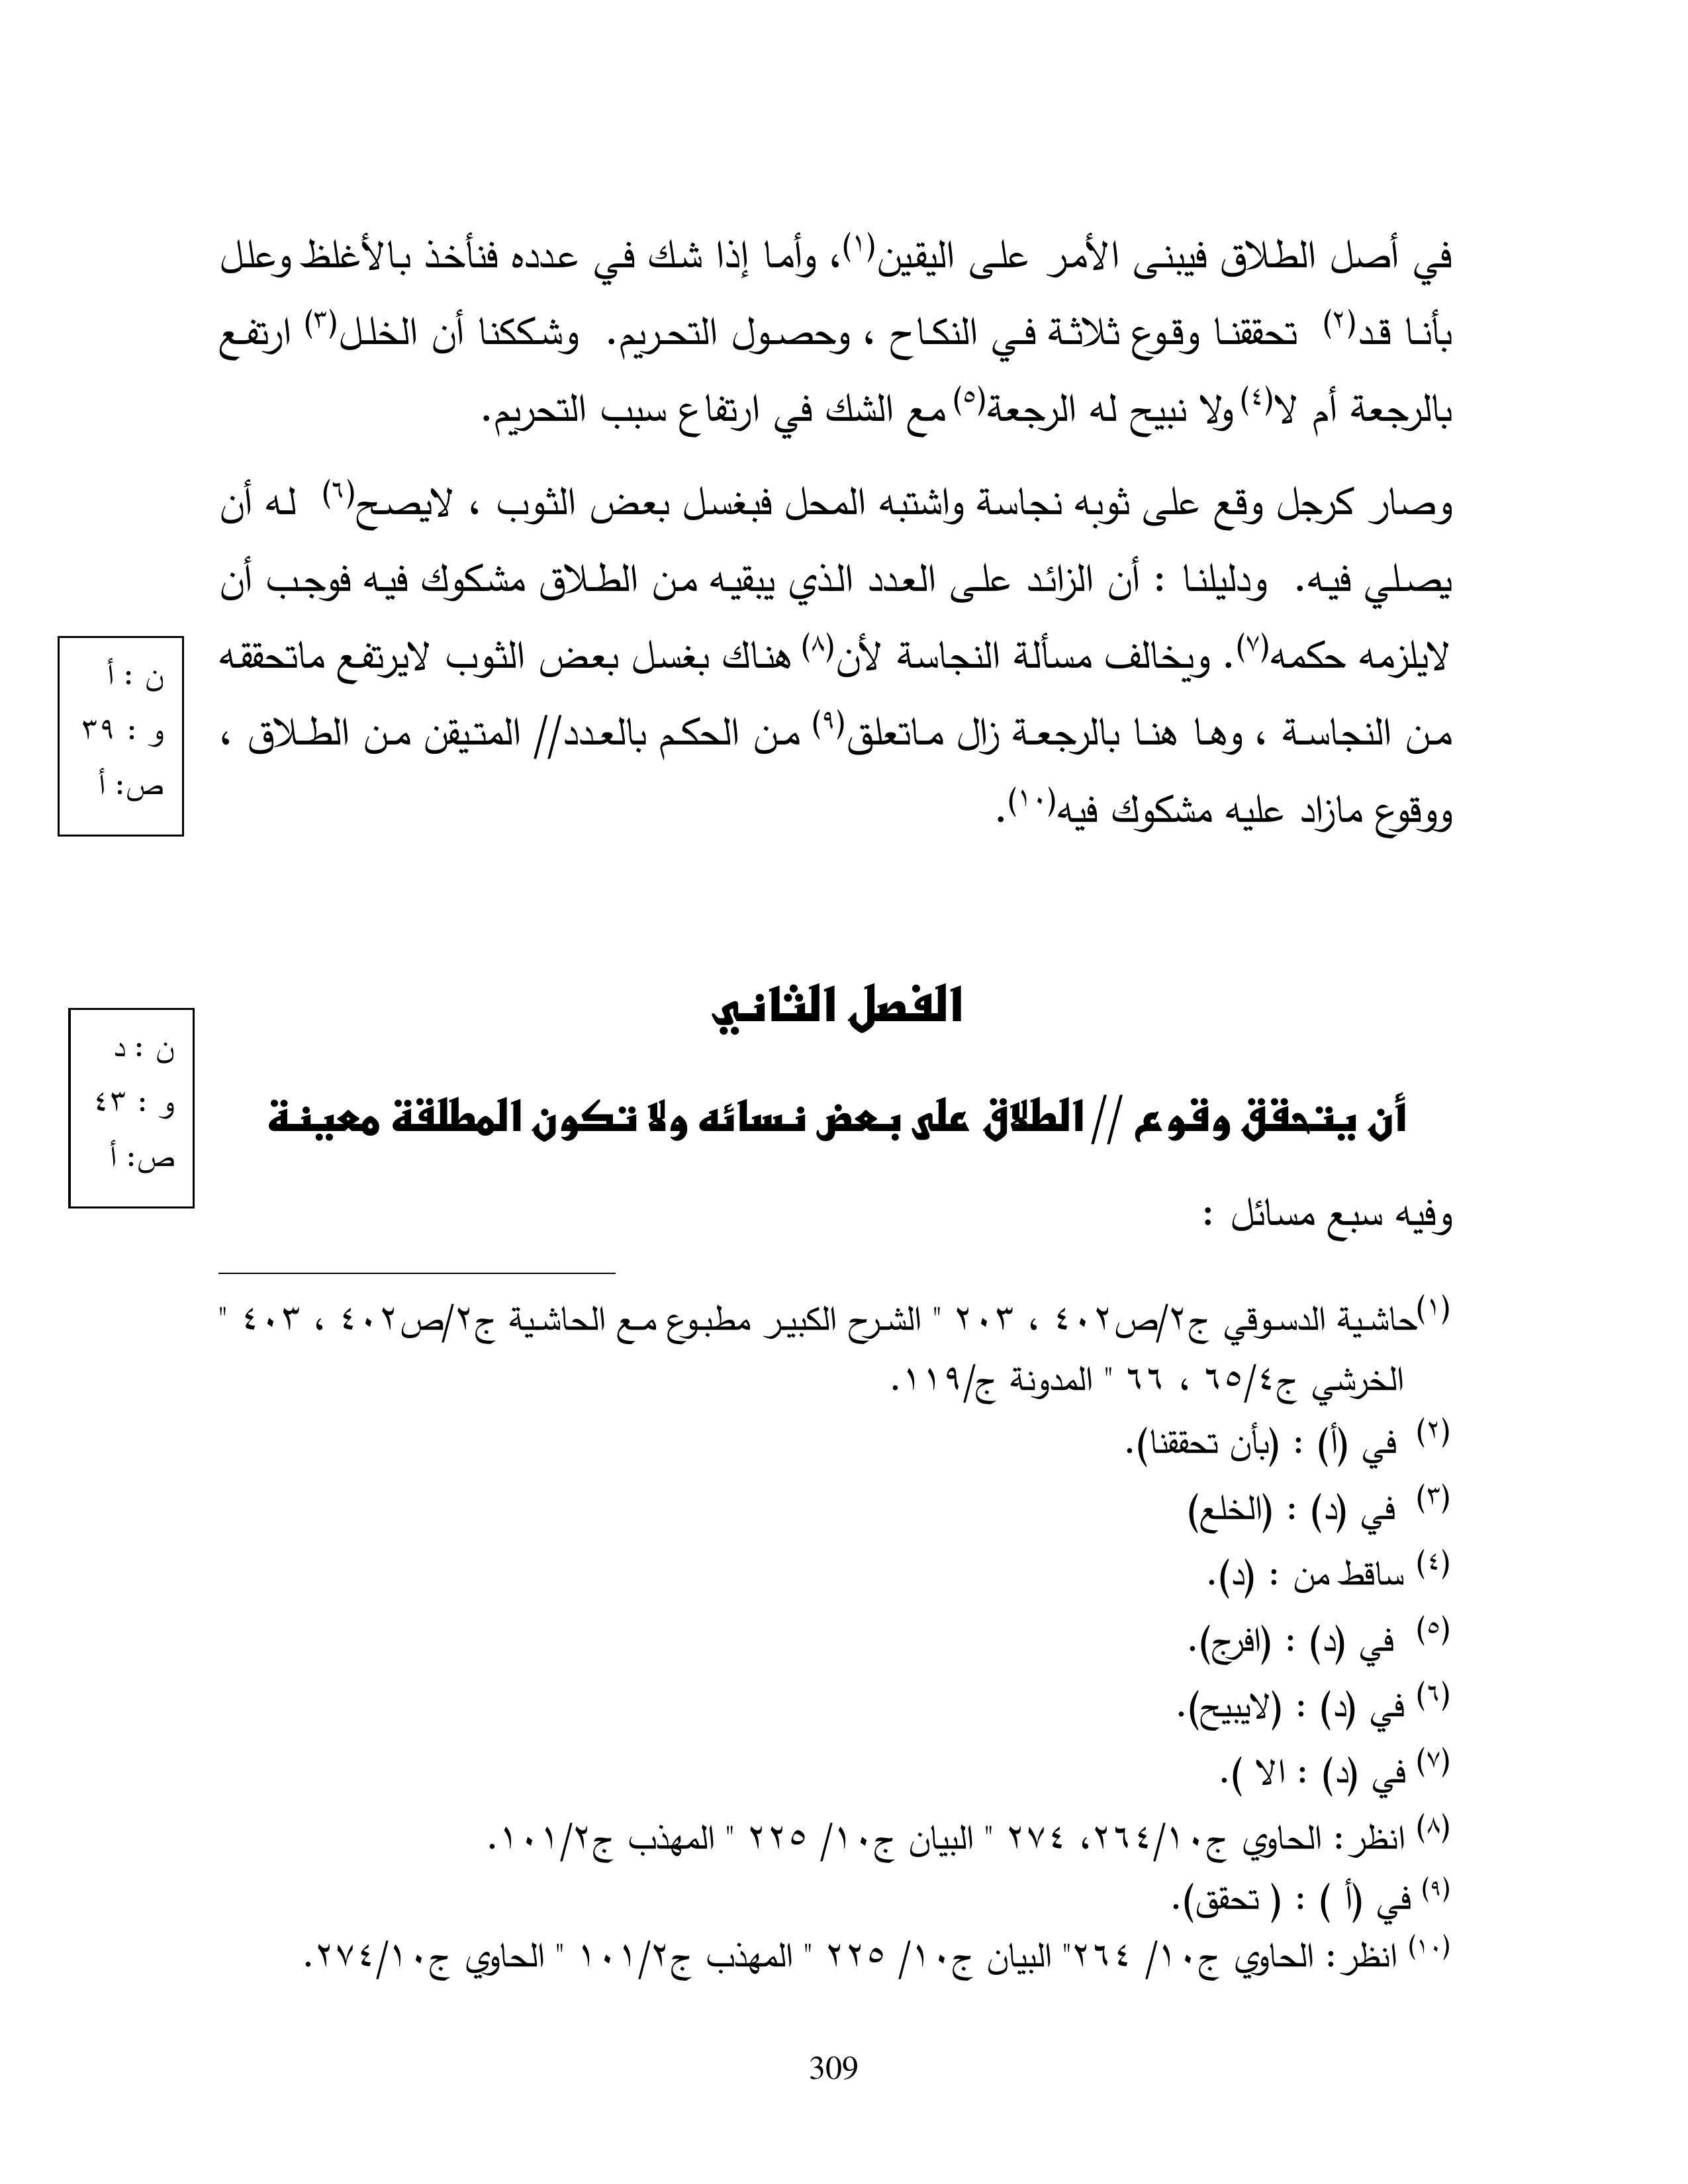 في أصل الطلاق فيبنى الأمر على اليقين(١)، وأما إذا شك في عدده فنأخذ بالأغلظ وعلل
بأنا قد(٢) تحققنا وقوع ثلاثة في النكاح ، وحصول التحريم. وشككنا أن الخلل(٣) ارتفع
بالرجعة أم لا(٤) ولا نبيح له الرجعة(٥) مع الشك في ارتفاع سبب التحريم.
وصار كرجل وقع على ثوبه نجاسة واشتبه المحل فبغسل بعض الثوب ، لايصح(٦) له أن
يصلي فيه. ودليلنا : أن الزائد على العدد الذي يبقيه من الطلاق مشكوك فيه فوجب أن
لايلزمه حكمه(٧). ويخالف مسألة النجاسة لأن(٨) هناك بغسل بعض الثوب لايرتفع ماتحققه
من النجاسة ، وها هنا بالرجعة زال ماتعلق(٩) من الحكم بالعدد// المتيقن من الطلاق ،
ووقوع مازاد عليه مشكوك فيه(١٠).
ن : أ
و : ٣٩
ص: أ
الفصل الثاني
أن يتحقق وقوع // الطلاق على بعض نسائه ولا تكون المطلقة معينة
ن : د
و : ٤٣
ص: أ
وفيه سبع مسائل :
(١)حاشية الدسوقي ج٢/ص٤٠٢ ، ٢٠٣ " الشرح الكبير مطبوع مع الحاشية ج٢/ص٤٠٢ ، ٤٠٣ "
الخرشي ج٦٥/٤ ، ٦٦ " المدونة ج/١١٩.
(٢) في (أ) : (بأن تحققنا).
(٣) في (د) : (الخلع)
(٤) ساقط من : (د).
(٥) في (د) : (افرج).
(٦) في (د) : (لايبيح).
(٧) في (د) : الا ).
(٨) انظر: الحاوي ج٢٦٤/١٠، ٢٧٤ " البيان ج١٠/ ٢٢٥ " المهذب ج١٠١/٢.
(٩) في (أ ) : ( تحقق).
(١٠) انظر: الحاوي ج١٠/ ٢٦٤" البيان ج١٠/ ٢٢٥ " المهذب ج١٠١/٢ " الحاوي ج٢٧٤/١٠.
309